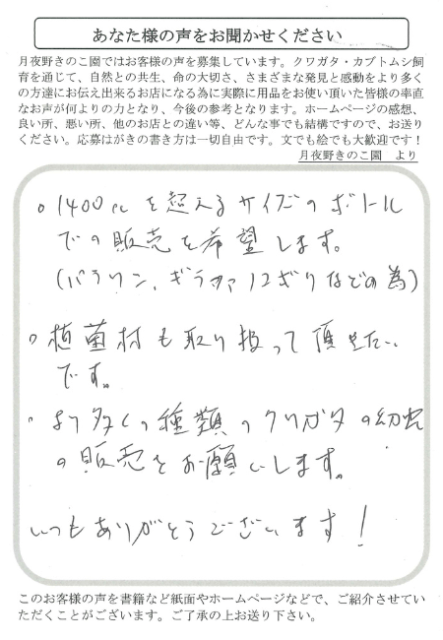 あなた様の声をお聞かせください
月夜野きのこ園ではお客様の声を募集しています。クワガタ・カブトムシ飼
育を通じて、自然との共生、命の大切さ、さまざまな発見と感動をより多く
の方達にお伝え出来るお店になる為に実際に用品をお使い頂いた皆様の率直
なお声が何よりの力となり、今後の参考となります。ホームページの感想、
良い所、悪い所、他のお店との違い等、どんな事でも結構ですので、お送り
ください。応募はがきの書き方は一切自由です。文でも絵でも大歓迎です！
月夜野きのこ園　より
。1400ccを超えるサイズのボトル
での販売を希望します。
(パラワン、ギラファ、などの為)
。植菌材も取り扱って頂きたい
です。
・より多くの種類のクワガタの幼虫
の販売をお願いします。
いつもありがとうございます！
このお客様の声を書籍など紙面やホームページなどで、ご紹介させてい
ただくことがございます。ご了承の上お送り下さい。